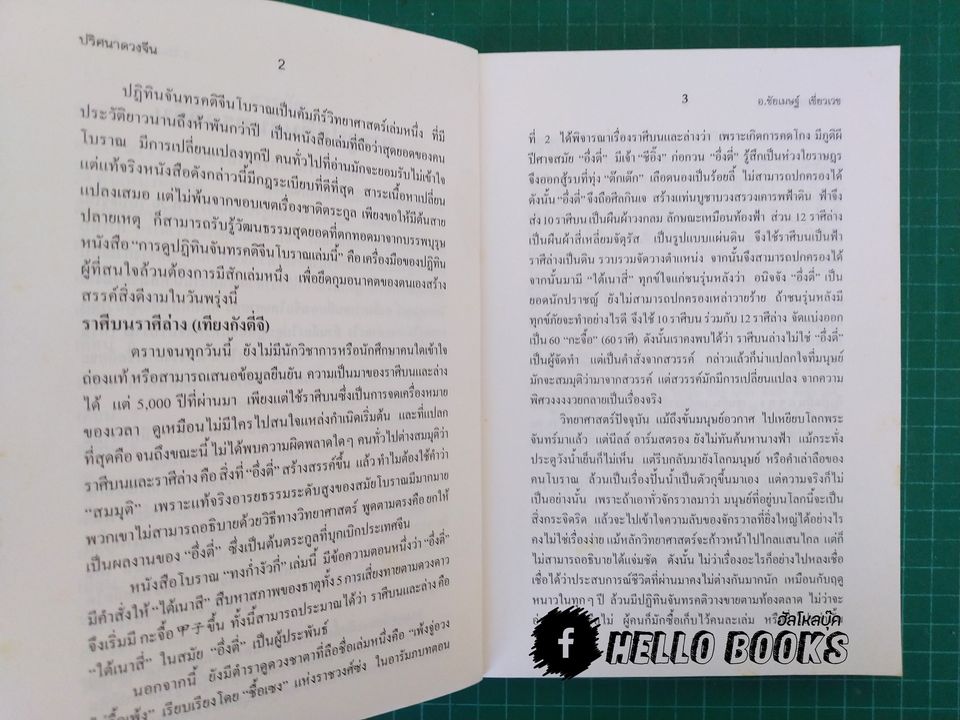 ปริศนาดวงจีน
2
ปฏิทินจันทรคติจีนโบราณเป็นคัมภีร์วิทยาศาสตร์เล่มหนึ่ง ที่มี
ประวัติยาวนานถึงห้าพันกว่าปี เป็นหนังสือเล่มที่ถือว่าสุดยอดของคน
โบราณ มีการเปลี่ยนแปลงทุกปี คนทั่วไปที่อ่านมักจะยอมรับไม่เข้าใจ
แต่แท้จริงหนังสือดังกล่าวนี้มีกฎระเบียบที่ดีที่สุด สาระเนื้อหาเปลี่ยน
แปลงเสมอ แต่ไม่พ้นจากขอบเขตเรื่องชาติตระกูล เพียงขอให้มีต้นสาย
ปลายเหตุ ก็สามารถรับรู้วัฒนธรรมสุดยอดที่ตกทอดมาจากบรรพบุรุษ
หนังสือ "การดูปฏิทินจันทรคติจีนโบราณเล่มนี้" คือเครื่องมือของปฏิทิน
ผู้ที่สนใจล้วนต้องการมีสักเล่มหนึ่ง เพื่อยึดกุมอนาคตของตนเองสร้าง
สรรค์สิ่งดีงามในวันพรุ่งนี้
ราศีบนราศีล่าง (เทียงกังตี่จี)
ตราบจนทุกวันนี้ ยังไม่มีนักวิชาการหรือนักศึกษาคนใดเข้าใจ
ถ่องแท้ หรือสามารถเสนอข้อมูลยืนยัน ความเป็นมาของราศีบนและล่าง
ได้ แต่ 5,000 ปีที่ผ่านมา เพียงแต่ใช้ราศีบนซึ่งเป็นการจดเครื่องหมาย
ของเวลา ดูเหมือนไม่มีใครไปสนใจแหล่งกำเนิดเริ่มต้น และที่แปลก
ที่สุดคือ จนถึงขณะนี้ ไม่ได้พบความผิดพลาดใดๆ คนทั่วไปต่างสมมุติว่า
ราศีบนและราศีล่าง คือ สิ่งที่ "อึ้งตี่" สร้างสรรค์ขึ้น แล้ว ทำไมต้องใช้คำว่า
"สมมุติ" เพราะแท้จริงอารยธรรมระดับสูงของสมัยโบราณมีมากมาย
พวกเขาไม่สามารถอธิบายด้วยวิธีทางวิทยาศาสตร์ พูดตามตรงคือ ยกให้
เป็นผลงานของ "อึ้งตี่" ซึ่งเป็นต้นตระกูลที่บุกเบิกประเทศจีน
หนังสือโบราณ "ทงกำงังกี่" เล่มนี้ มีข้อความตอนหนึ่งว่า "อึ้งตี่"
มีคำสั่งให้ "ได้เนาสี" สืบหาสภาพของธาตุทั้ง 5 การเสี่ยงทายตามดวงดาว
จึงเริ่มมี กะจื้อ 甲子 ขึ้น ทั้งนี้สามารถประมาณได้ว่า ราศีบนและล่าง คือ
"ได้เนาสี่" ในสมัย "อึ้งตี่" เป็นผู้ประพันธ์
นอกจากนี้ ยังมีตำราดูดวงชาตาที่ลือชื่อเล่มหนึ่งคือ "เพ้งจู่อวง
ไม่ซื้อเพ้ง" เรียบเรียงโดย "ซื้อเซง" แห่งราชวงศ์ซ่ง ในอารัมภบทตอน
3
อ.ชัยเมษฐ์ เชี่ยวเวช
ที่ 2 ได้พิจารณาเรื่องราศีบนและล่างว่า เพราะเกิดการคดโกง มีภูติผี
ปีศาจสมัย "อึ้งตี่" มีเจ้า "ชีอิ๊ง" ก่อกวน "อึ้งตี่" รู้สึกเป็นห่วงใยราษฎร
จึงออกสู้รบที่ทุ่ง "ต๊กเต๊ก" เลือดนองเป็นร้อยลี้ ไม่สามารถปกครองได้
ดังนั้น "อึ้งตี่" จึงถือศีลกินเจ สร้างแท่นบูชาบวงสรวงเคารพฟ้าดิน ฟ้าจึง
ส่ง 10 ราศีบน เป็นผืนผ้าวงกลม ลักษณะเหมือนท้องฟ้า ส่วน 12 ราศีล่าง
เป็นผืนผ้าสี่เหลี่ยมจัตุรัส เป็นรูปแบบแผ่นดิน จึงใช้ราศีบนเป็นฟ้า
ราศีล่างเป็นดิน รวบรวมจัดวางตำแหน่ง จากนั้นจึงสามารถปกครองได้
จากนั้นมามี "ได้เนาสี่" ทุกข์ใจแก่ชนรุ่นหลังว่า อนิจจัง "อึ้งตี่" เป็น
ยอดนักปราชญ์ ยังไม่สามารถปกครองเหล่าวายร้าย ถ้าชนรุ่นหลังมี
ทุกข์ภัยจะทำอย่างไรดี จึงใช้ 10 ราศีบน ร่วมกับ 12 ราศีล่าง จัดแบ่งออก
เป็น 60 "กะจื้อ" (60 ราศี) ดังนั้นเราคงพบได้ว่า ราศีบนล่างไม่ใช่ "อึ้งตี่"
เป็นผู้จัดทำ แต่เป็นคำสั่งจากสวรรค์ กล่าวแล้วก็น่าแปลกใจที่มนุษย์
มักจะสมมุติว่ามาจากสวรรค์ แต่สวรรค์มักมีการเปลี่ยนแปลง จากความ
พิศวงงงงวยกลายเป็นเรื่องจริง
วิทยาศาสตร์ปัจจุบัน แม้ถึงขั้นมนุษย์อวกาศ ไปเหยียบโลกพระ
จันทร์มาแล้ว แต่นีลส์ อาร์มสตรอง ยังไม่ทันค้นหานางฟ้า แม้กระทั่ง
ประตูวังน้ำเย็นก็ไม่เห็น แต่รีบกลับมายังโลกมนุษย์ หรือคำเล่าลือของ
คนโบราณ ล้วนเป็นเรื่องปั้นน้ำเป็นตัวถูกขึ้นมาเอง แต่ความจริงก็ไม่
เป็นอย่างนั้น เพราะถ้าเอาทั่วจักรวาลมาว่า มนุษย์ที่อยู่บนโลกนี้จะเป็น
สิ่งกระจิดริด แล้วจะไปเข้าใจความลับของจักรวาลที่ยิ่งใหญ่ได้อย่างไร
คงไม่ใช่เรื่องง่าย แม้หลักวิทยาศาสตร์จะก้าวหน้าไปไกลแสนไกล แต่ก็
ไม่สามารถอธิบายได้แจ่มชัด ดังนั้น ไม่ว่าเรื่องอะไรก็อย่างไปหลงเชื่อ
เชื่อได้ว่าประสบการณ์ชีวิตที่ผ่านมาคงไม่ต่างกันมากนัก เหมือนกับฤดู
หนาวในทุกๆ ปี ล้วนมีปฏิทินจันทรคติวางขายตามท้องตลาด ไม่ว่าจะ
ไม่ ผู้คนก็มักซื้อเก็บไว้คนละเล่ม หรือ
ฮัลโหลบุ๊ค
f HELLO BOOKS